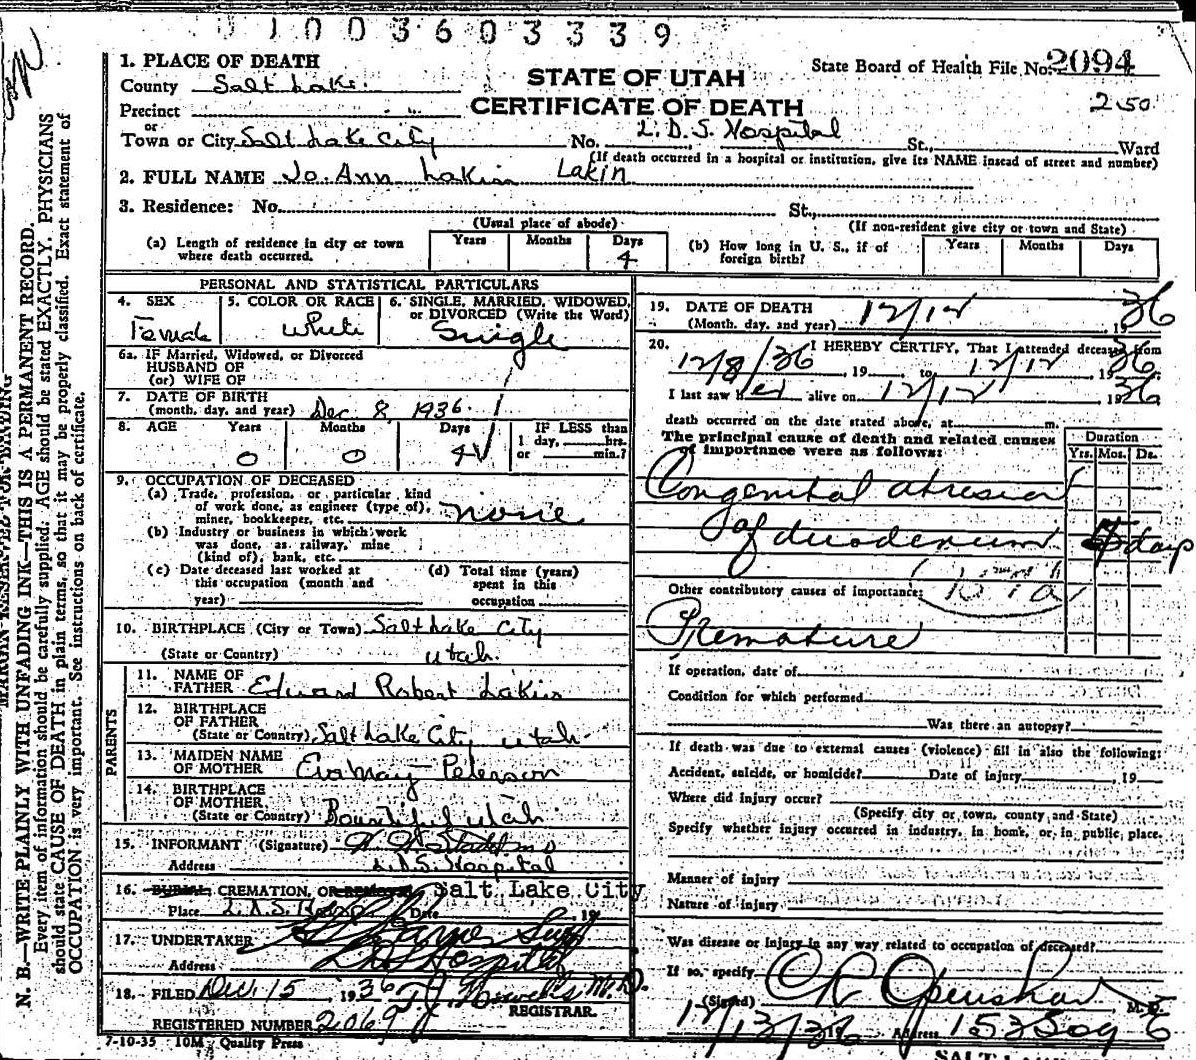 1003603339
1. PLACE OF DEATH
STATE OF UTAH
CERTIFICATE OF DEATH
State Board of Health File No. 2094
2 50
County Salt Lake.
Precinct "
or
Town or City Salt Lake City No. L.D.S. Hospital St., Ward
(If death occurred in a hospital or institution, give its NAME insead of street and number)
2. FULL NAME Jo Ann Lakin Lakin
3. Residence: No. St.,
(Usual place of abode) (If non-resident give city or town and State)
(a) Length of residence in city or town where death occurred. Years Months Days 4
(b) How long in U. S., if of foreign birth? Years Months Days
PERSONAL AND STATISTICAL PARTICULARS
4. SEX Female
5. COLOR OR RACE White
6. SINGLE, MARRIED, WIDOWED, or DIVORCED (Write the Word) Single
6a. IF Married, Widowed, or Divorced
HUSBAND OF
(or) WIFE OF
7. DATE OF BIRTH
(month, day, and year) Dec 8, 1936
8. AGE Years 0 Months 0 Days 4
IF LESS than
1 day, hrs.
or min.?
9. OCCUPATION OF DECEASED
(a) Trade, profession, or particular kind
of work done, as engineer (type of),
miner, bookkeeper, etc. none
(b) Industry or business in which work
was done, as railway, mine
(kind of), bank, etc.
(c) Date deceased last worked at
this occupation (month and
year)
(d) Total time (years)
spent in this
occupation
10. BIRTHPLACE (City or Town) Salt Lake City
(State or Country) Utah.
PARENTS
11. NAME OF
FATHER Edward Robert Lakin
12. BIRTHPLACE
OF FATHER
(State or Country) Salt Lake City Utah
13. MAIDEN NAME
OF MOTHER Evamay Peterson
14. BIRTHPLACE
OF MOTHER
(State or Country) Bountiful Utah
15. INFORMANT (Signature)
Address L.D.S. Hospital
16. BURIAL, CREMATION, OR REMOVAL Salt Lake City
Place L.D.S. Date 19
17. UNDERTAKER
Address L.D.S. Hospital
18. FILED Dec 15 1936
M.D.
REGISTRAR.
REGISTERED NUMBER 2069
7-10-35 10M Quality Press
19. DATE OF DEATH
(Month, day, and year) 12/12 1936
20. I HEREBY CERTIFY, That I attended deceased from
12/8/36, 19 to 12/12 1936
I last saw her alive on 12/12 1936
death occurred on the date stated above, at m.
The principal cause of death and related causes
of importance were as follows:
Duration
Yrs. Mos. Ds.
Congenital atresia
of duodenum days
Other contributory causes of importance:
Premature
If operation, date of
Condition for which performed
Was there an autopsy?
If death was due to external causes (violence) fill in also the following:
Accident, suicide, or homicide? Date of injury , 19
Where did injury occur?
(Specify city or town, county and State)
Specify whether injury occurred in industry, in home, or in public place.
Manner of injury
Nature of injury
Was disease or injury in any way related to occupation of deceased?
If so, specify
(Signed) C R Openshaw M. D.
12/13/36 19 Address
N. B.—WRITE PLAINLY WITH UNFADING INK—THIS IS A PERMANENT RECORD.
Every item of information should be carefully supplied. AGE should be stated EXACTLY. PHYSICIANS
should state CAUSE OF DEATH in plain terms, so that it may be properly classified. Exact statement of
OCCUPATION is very important. See instructions on back of certificate.